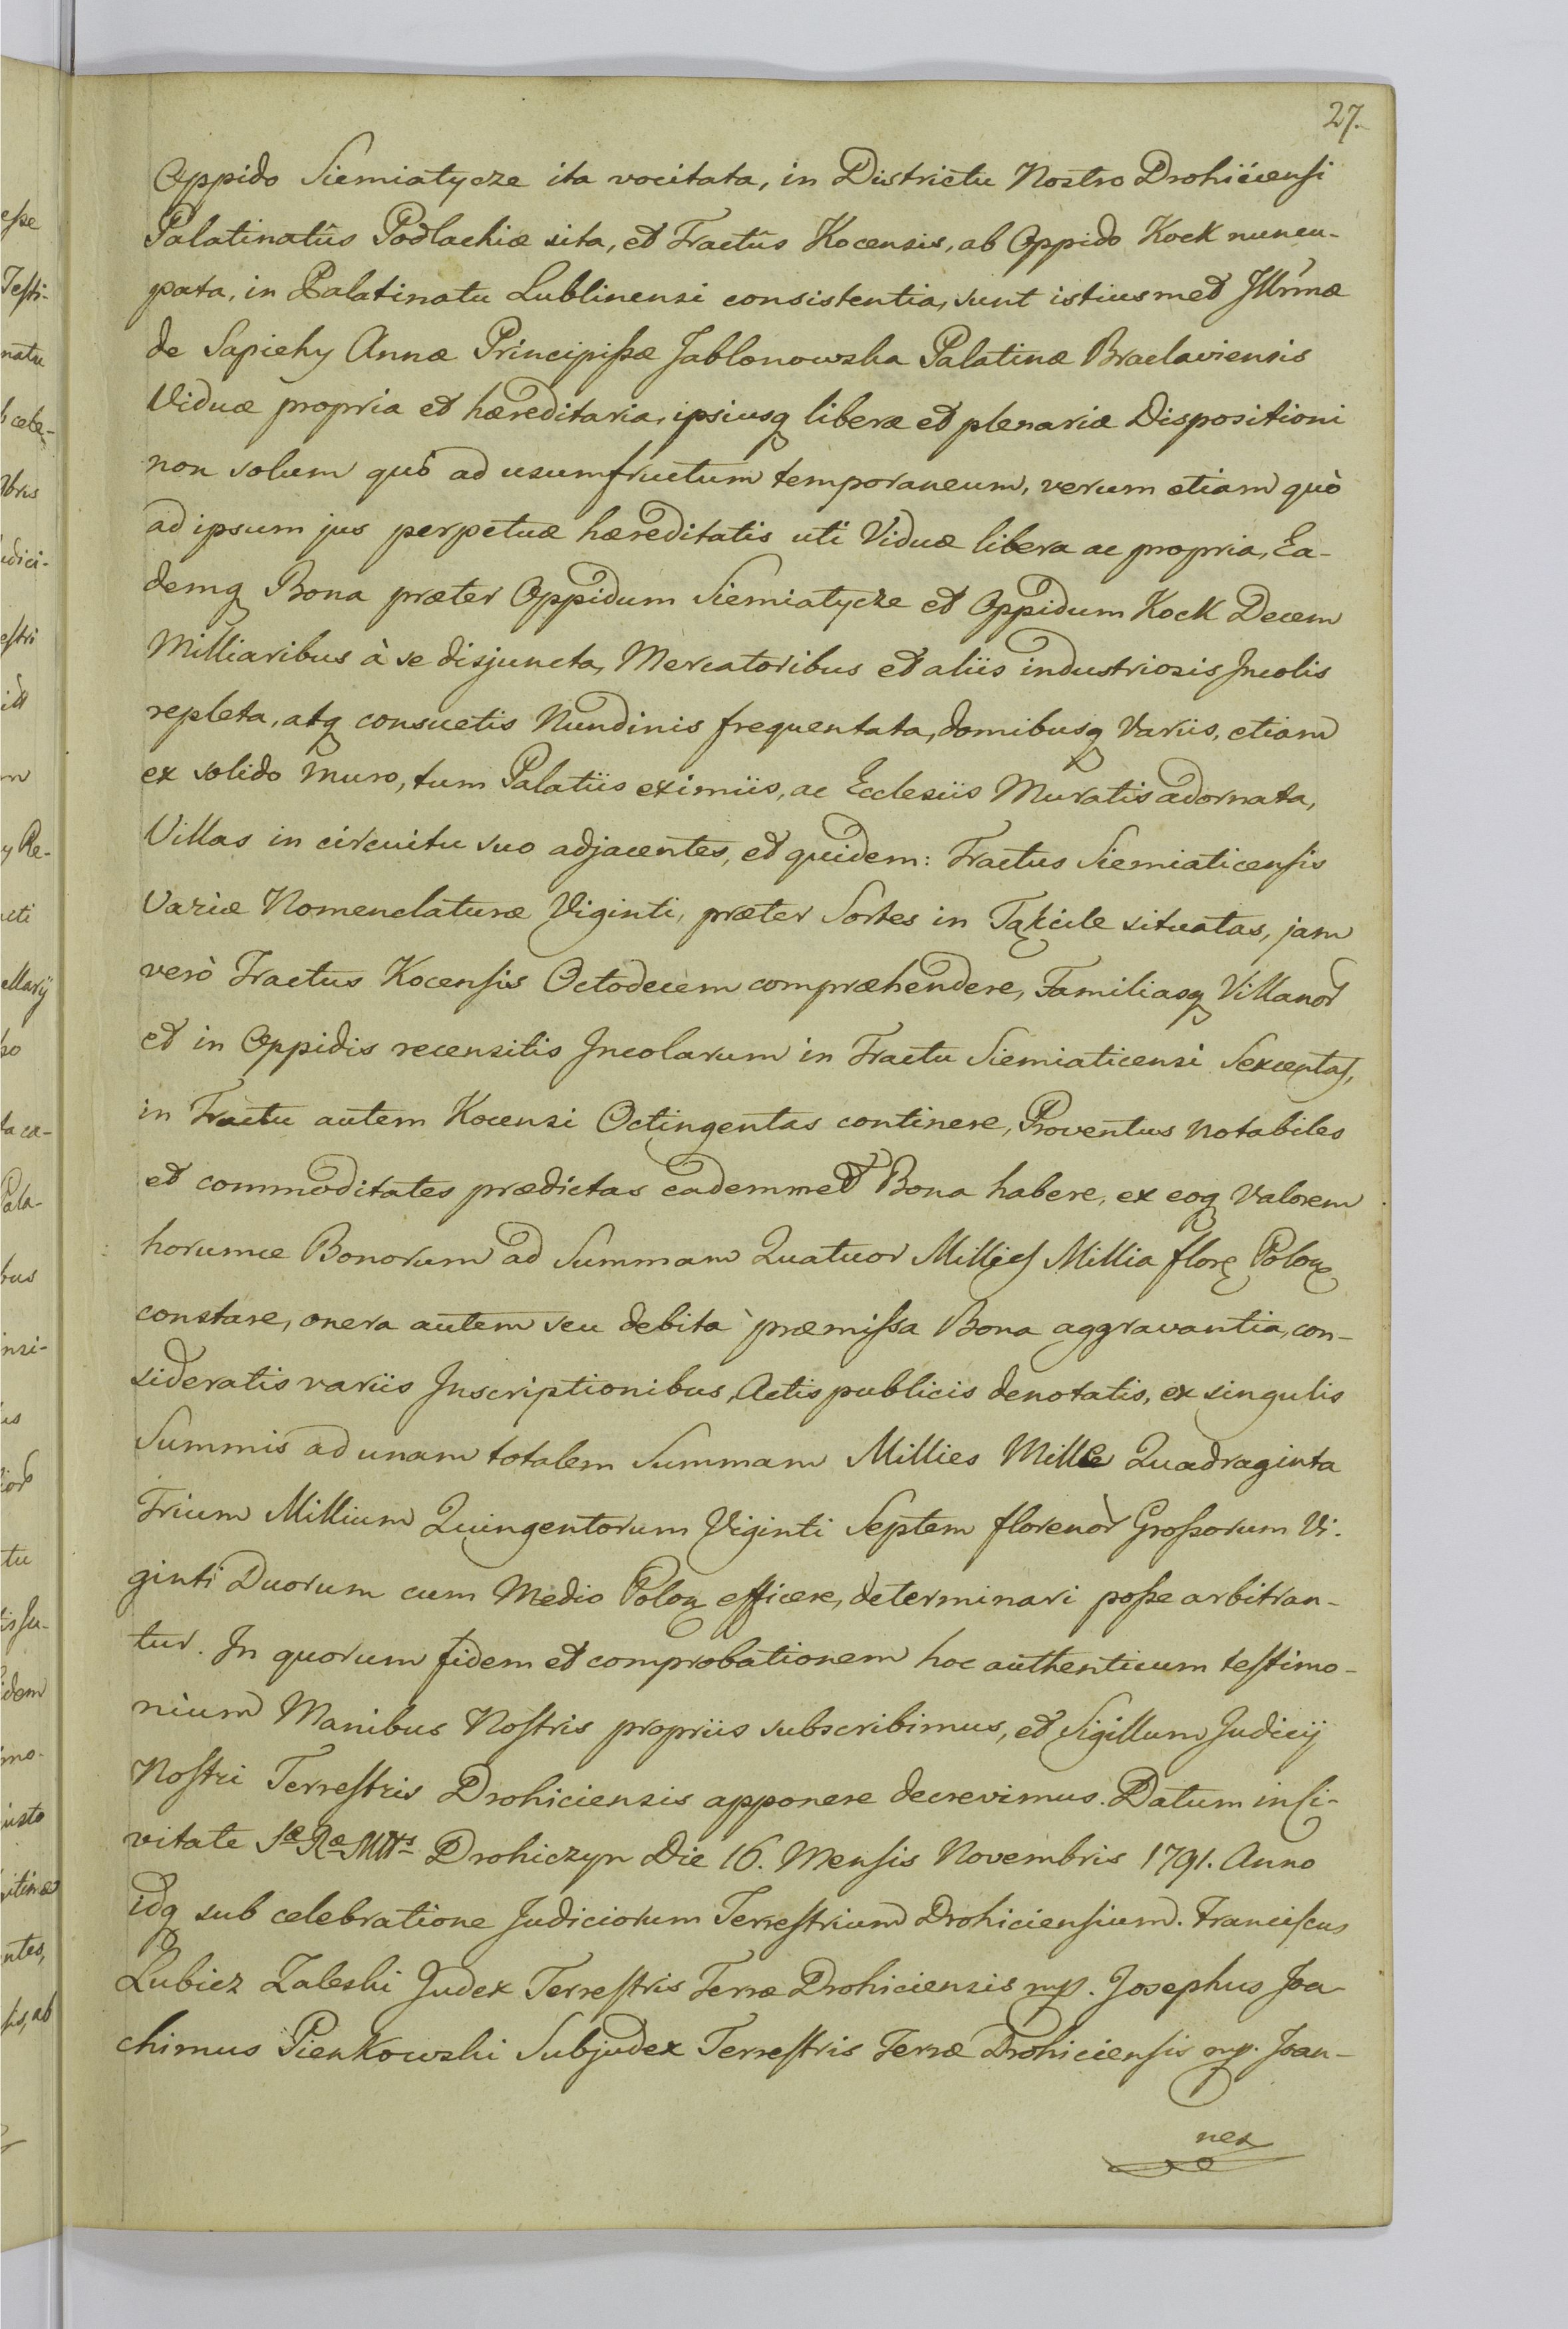 27.
Oppido Siemiatycze ita vocitata, in Districtu Nostro Drohiciensi
Palatinatûs Podlachiæ sita, et Tractûs Kocensis, ab Oppido Kock nuncu-
pata, in Palatinatu Lublinensi consistentia, sunt istiusmet Illrmæ
de Sapiehy Annæ Principißæ Jablonowska Palatinæ Braclaviensis
Viduæ propria et hæreditaria, ipsiusq liberæ et plenariæ Dispositioni
non solum quò ad usumfructum temporaneum, verum etiam quò
ad ipsum jus perpetuæ hæreditatis uti Viduæ libera ac propria, Ea-
demq Bona præter Oppidum Siemiatycze et Oppidum Kock Decem
Milliaribus à se disjuncta, Mercatoribus et aliis industriosis Incolis
repleta, atq consuetis Nundinis frequentata, domibusq Variis, etiam
ex solido muro, tum Palatiis eximiis, ac Ecclesiis Muratis adornata,
Villas in circuitu suo adjacentes, et quidem: Tractus Siemiaticensis
Variæ Nomenclaturæ Viginti, præter Sortes in situatas, jam
verò Tractus Kocensis Octodecem compræhendere, Familiasq Villanor
et in Oppidis recensitis Incolarum in Tractu Siemiaticensi Sexcentas,
in Tractu autem Kocensi Octingentas continere, Proventus notabiles
et commoditates prædictas eademmet Bona habere, ex eoq Valorem
horumce Bonorum ad Summam Quatuor Millies Millia flor Polon
constare, onera autem seu debita præmißa Bona aggravantia, con-
sideratis variis Inscriptionibus, Actis publicis denotatis, ex singulis
Summis ad unam totalem Summam Millies Mille Quadraginta
Trium Millium Quingentorum Viginti Septem florenor Großorum Vi-
ginti Duorum cum Medio Polon efficere, determinari poße arbitran-
tur. In quorum fidem et comprobationem hoc authenticum testimo-
nium Manibus Nostris propriis subscribimus, et Sigillum Judicij
Nostri Terrestris Drohiciensis apponere decrevimus. Datum in Ci-
vitate Sæ Ræ Mttis Drohiczyn Die 16. Mensis Novembris 1791. Anno
idq sub celebratione Judiciorum Terrestrium Drohiciensium. Franciscus
Lubicz Zaleski Judex Terrestris Terræ Drohiciensis mp. Josephus Joa-
chimus Pienkowski Subjudex Terrestris Terræ Drohiciensis mp. Joan-
nes